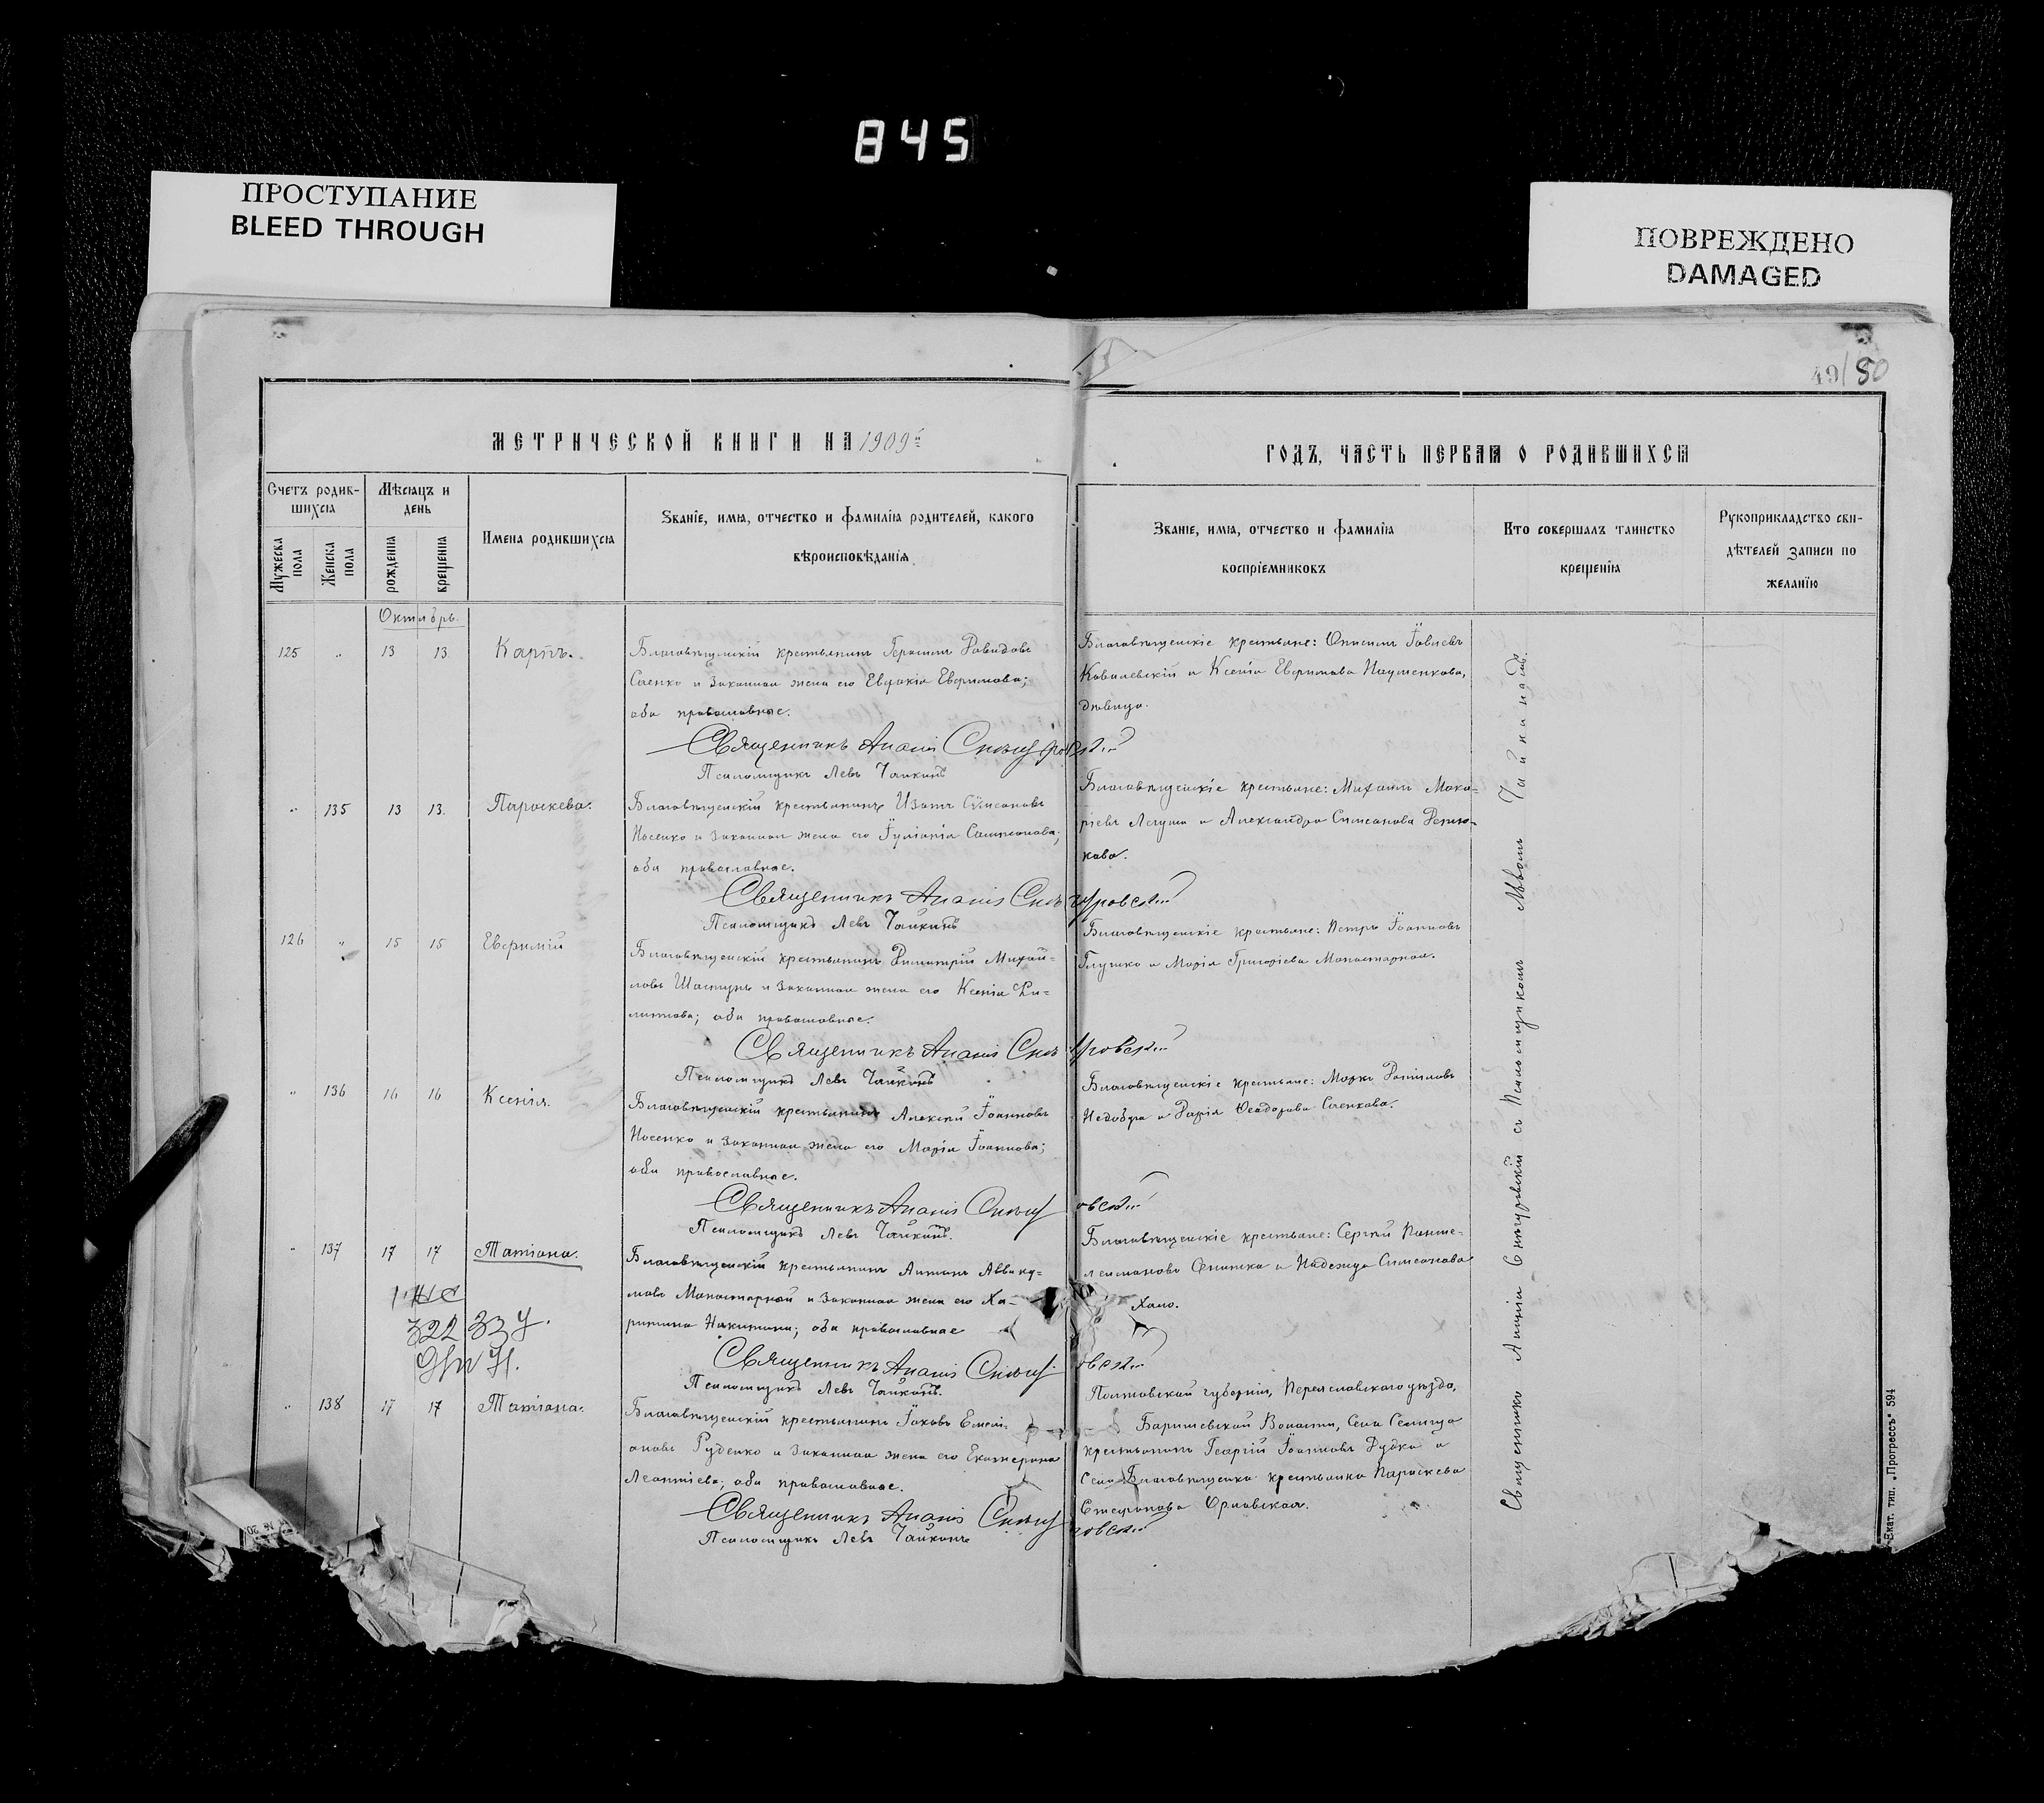 845
ПРОСТУПАНИЕ
BLEED THROUGH
ПОВРЕЖДЕНО
DAMAGED
49/80
МЕТРИЧЕСКОЙ КНИГИ НА 1909й
ГОДЪ, ЧАСТЬ ПЕРВАЯ О РОДИВШИХСЯ
Счетъ родив-
шихся
Мѣсяцъ и
день
Мужеска
пола
Женска
пола
рожденія
крещенія
Имена родившихся
Званіе, имя, отчество и фамилія родителей, какого
вѣроисповѣданія
Званіе, имя, отчество и фамилія
воспріемниковъ
Кто совершалъ таинство
крещенія
Рукоприкладство сви-
дѣтелей записи по
желанію
Октябрь.
125 " 13 13 Карпъ.
Благовѣщенскій крестьянинъ Герасимъ Давидовъ
Саенко и законная жена его Евдокія Евфимова;
оба православные.
Благовѣщенскіе крестьяне: Онисимъ Іовлевъ
Ковалевскій и Ксенія Евфимова Пауменкова,
дѣвица.
Священникъ Ананій
Псаломщикъ Левъ Чайкинъ
" 135 13 13 Параскева.
Благовѣщенскій крестьянинъ Изотъ Симеоновъ
Носенко и законная жена его Іуліанія Сампсонова;
оба православные.
Благовѣщенскіе крестьяне: Михаилъ Мака-
ріевъ Лягуша и Александра Симеонова
кова.
Священникъ Ананій
Псаломщикъ Левъ Чайкинъ
126 " 15 15 Евфимій
Благовѣщенскій крестьянинъ Димитрій Михай-
ловъ и законная жена его Ксенія Фи-
липпова; оба православные.
Благовѣщенскіе крестьяне: Петръ Іоанновъ
Глушко и Марія Григоріева Монастырная.
Священникъ Ананій
Псаломщикъ Левъ Чайкинъ
" 136 16 16 Ксенія.
Благовѣщенскій крестьянинъ Алексій Іоанновъ
Носенко и законная жена его Марія Іоаннова;
оба православные.
Благовѣщенскіе крестьяне: Маркъ Даніиловъ
и Дарія Ѳеодорова Саенкова.
Священникъ Ананій
Псаломщикъ Левъ Чайкинъ.
" 137 17 17 Татіана.
Благовѣщенскій крестьянинъ Антонъ Авваку-
мовъ Монастырный и законная жена его Ха-
ритина Никитина; оба православные
Благовѣщенскіе крестьяне: Сергій Панте-
леимоновъ и Надежда Симеонова
Хало.
322
Священникъ Ананій
Псаломщикъ Левъ Чайкинъ.
" 138 17 17 Татіана.
Благовѣщенскій крестьянинъ Іаковъ Емели-
ановъ Руденко и законная жена его Екатерина
Леонтіева; оба православные.
Полтавской губерніи, Переяславскаго уѣзда,
Барышевской волости, села Селища
крестьянинъ Георгій Іоанновъ Дудка и
села Благовѣщенки крестьянка Параскева
Стефанова Орловская.
Священникъ Ананій
Псаломщикъ Левъ Чайкинъ
Священникъ Ананій Снѣгуровскій съ Псаломщикомъ Львомъ Чайкинымъ.
Екат. тип. „Прогрессъ" 594